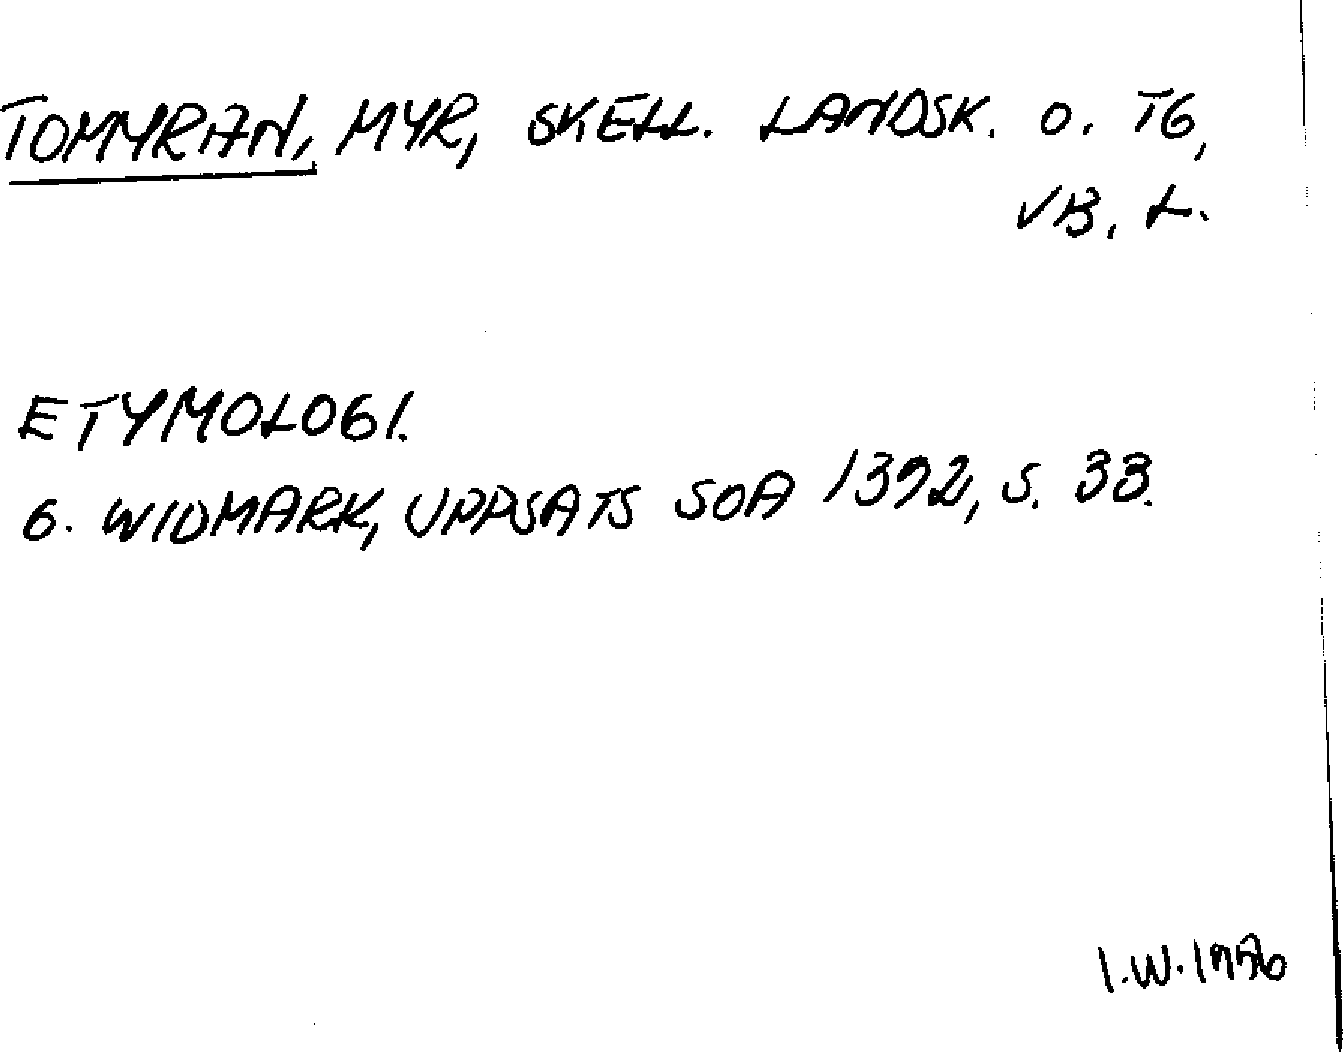 TOMYRAN, MYR, SKELL. LANDSK. O. TG,
VB. L.
ETYMOLOGI.
G. WIDMARK, UPPSATS SOA 1392, S. 33.
I.W. 1956